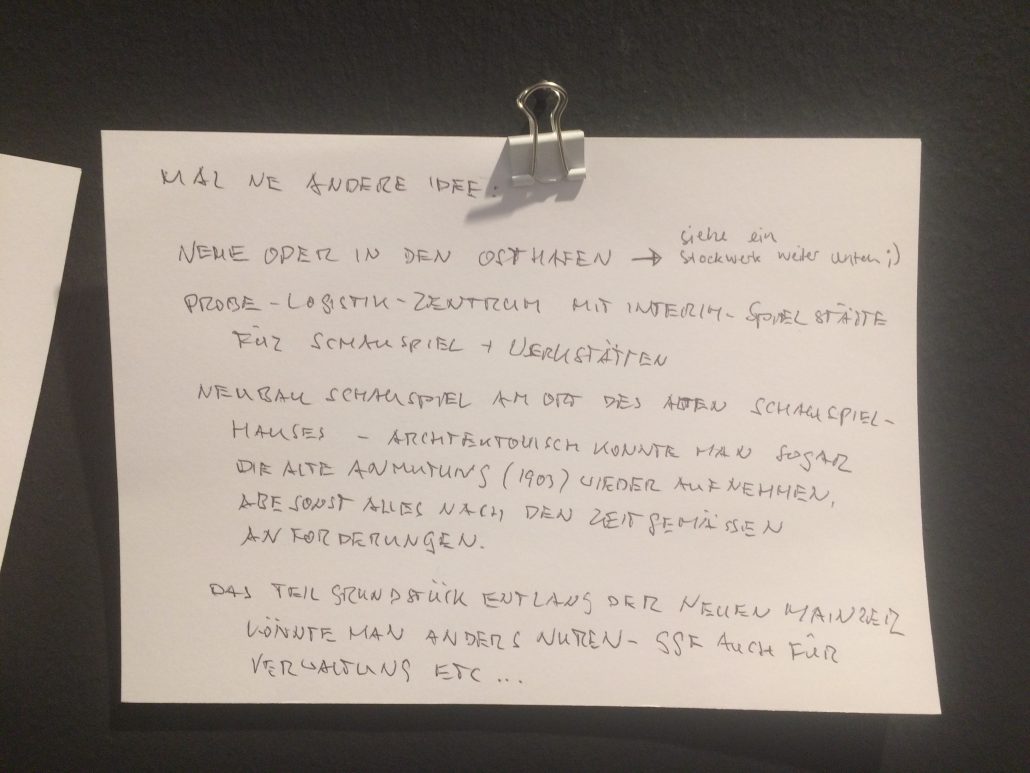 MAL NE ANDERE IDEE:
NEUE OPER IN DEN OSTHAFEN → siehe ein
stockwerk weiter unten ;)
PROBE-LOGISTIK-ZENTRUM MIT INTERIM-SPIELSTÄTTE
FÜR SCHAUSPIEL + WERKSTÄTTEN
NEUBAU SCHAUSPIEL AM ORT DES ALTEN SCHAUSPIEL-
HAUSES - ARCHITEKTONISCH KÖNNTE MAN SOGAR
DIE ALTE ANMUTUNG (1903) WIEDER AUFNEHMEN,
ABE SONST ALLES NACH DEN ZEITGEMÄSSEN
ANFORDERUNGEN.
DAS TEILGRUNDSTÜCK ENTLANG DER NEUEN MAINZER
KÖNNTE MAN ANDERS NUTZEN - GGF AUCH FÜR
VERWALTUNG ETC...